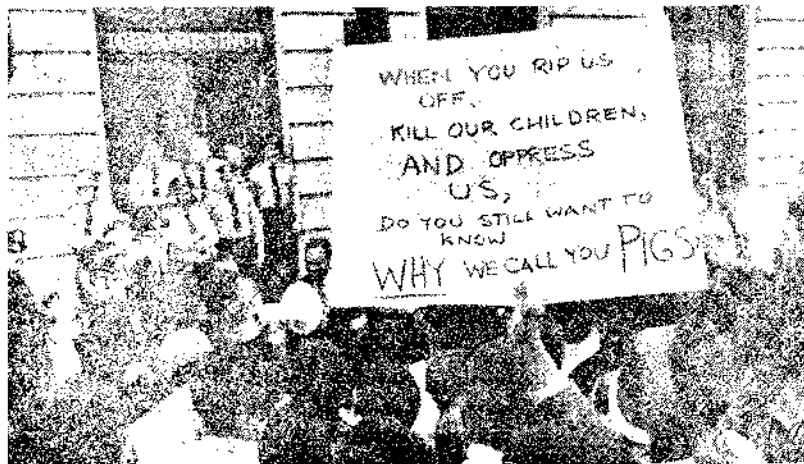 WHEN YOU RIP US
OFF,
KILL OUR CHILDREN,
AND OPPRESS
US,
DO YOU STILL WANT TO
KNOW
WHY WE CALL YOU PIGS